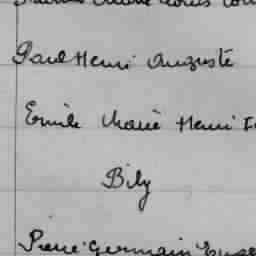 Paul Henri Auguste
Emile Marie Henri
Bily
Pierre Germain Euge